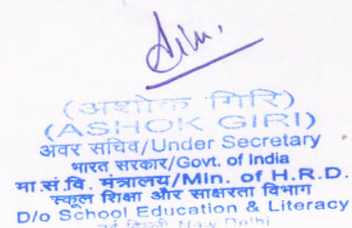 (अशोक गिरि)
(ASHOK GIRI)
अवर सचिव/Under Secretary
भारत सरकार/Govt. of India
मा.सं.वि. मंत्रालय/Min. of H.R.D.
स्कूल शिक्षा और साक्षरता विभाग
D/o School Education & Literacy
नई दिल्ली New Delhi